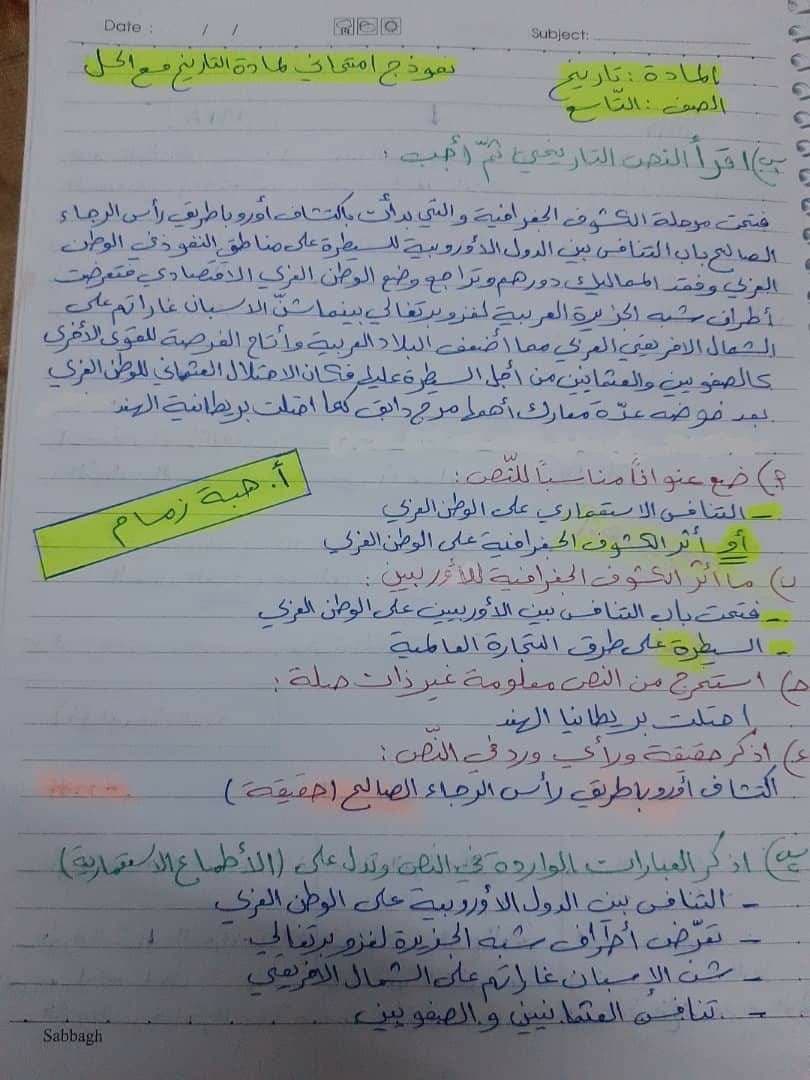 Date : / / Subject:
المادة : تاريخ نموذج امتحاني لمادة التاريخ مع الحل
الصف : التّاسع
س) اقرأ النص التاريخي ثمّ أجب :
فتحت مرحلة الكشوف الجغرافية والتي بدأت باكتشاف أوروبا طريق رأس الرجاء
الصالح باب التنافس بين الدول الأوروبية للسيطرة على مناطق النفوذ في الوطن
العربي وفقد المماليك دورهم وتراجع وضع الوطن العربي الاقتصادي فتعرضت
أطراف شبه الجزيرة العربية لغزو برتغالي بينما شنّ الاسبان غاراتهم على
الشمال الافريقي العربي مما أضعف البلاد العربية وأتاح الفرصة للقوى الأخرى
كالصفويين والعثمانيين من أجل السيطرة عليه فكان الاحتلال العثماني للوطن العربي
بعد خوضه عدّة معارك أهمها مرج دابق كما احتلت بريطانية الهند
أ. هبة زمام
أ) ضع عنواناً مناسباً للنّص :
- التنافس الاستعماري على الوطن العربي
أو أثر الكشوف الجغرافية على الوطن العربي
ب) ما أثر الكشوف الجغرافية للأوربيين :
- فتحت باب التنافس بين الأوربيين على الوطن العربي
- السيطرة على طرق التجارة العالمية
ج) استخرج من النص معلومة غير ذات صلة :
احتلت بريطانيا الهند
د) اذكر حقيقة ورأي ورد في النّص :
اكتشاف أوروبا طريق رأس الرجاء الصالح (حقيقة)
س) اذكر العبارات الواردة في النص وتدل على (الأطماع الاستعمارية)
- التنافس بين الدول الأوروبية على الوطن العربي
- تعرّض أطراف شبه الجزيرة لغزو برتغالي
- شن الاسبان غاراتهم على الشمال الافريقي
- تنافس العثمانيين و الصفويين
Sabbagh